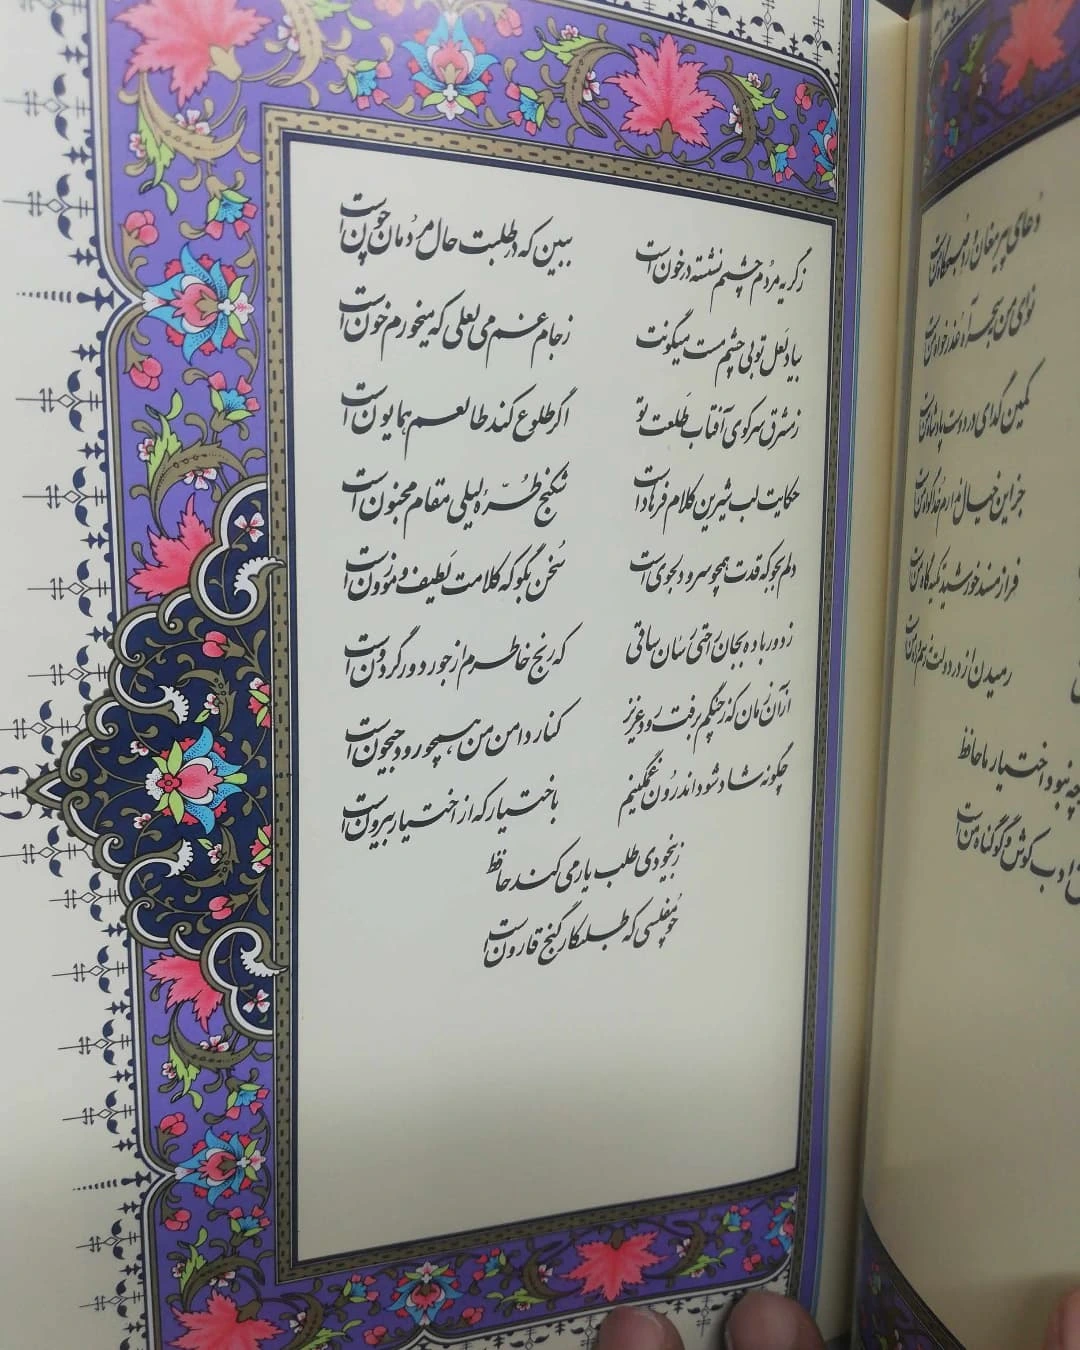 دعای پیر مغان ورد صبحگاه من است
نوای من به سحر آه عذرخواه من است
کمین گدای در دوست پادشاه من است
جز این خیال ندارم خدا گواه من است
فراز مسند خورشید تکیه گاه من است
رمیدن از در دولت نه رسم و راه من است
نبود اختیار ما حافظ
ادب کوش و گو گناه من است
زگریه مردم چشمم نشسته در خون است ببین که در طلبت حال مردمان چون است
بیاد لعل تو بی چشم مست میگونت زجام غم می لعلی که میخورم خون است
زمشرق سر کوی آفتاب طلعت تو اگر طلوع کند طالعم همایون است
حکایت لب شیرین کلام فرهاد است شکنج طرّه لیلی مقام مجنون است
دلم بجو که قدت همچو سرو دلجوی است سخن بگو که کلامت لطیف و موزون است
زدور باده بجان راحتی رسان ساقی که رنج خاطرم از جور دور گردون است
از آن زمان که زچنگم برفت رود عزیز کنار دامن من همچو رود جیحون است
چگونه شاد شود اندرون غمگینم باختیار که از اختیار بیرون است
زبیخودی طلب یار می کند حافظ
چو مفلسی که طلبکار گنج قارون است